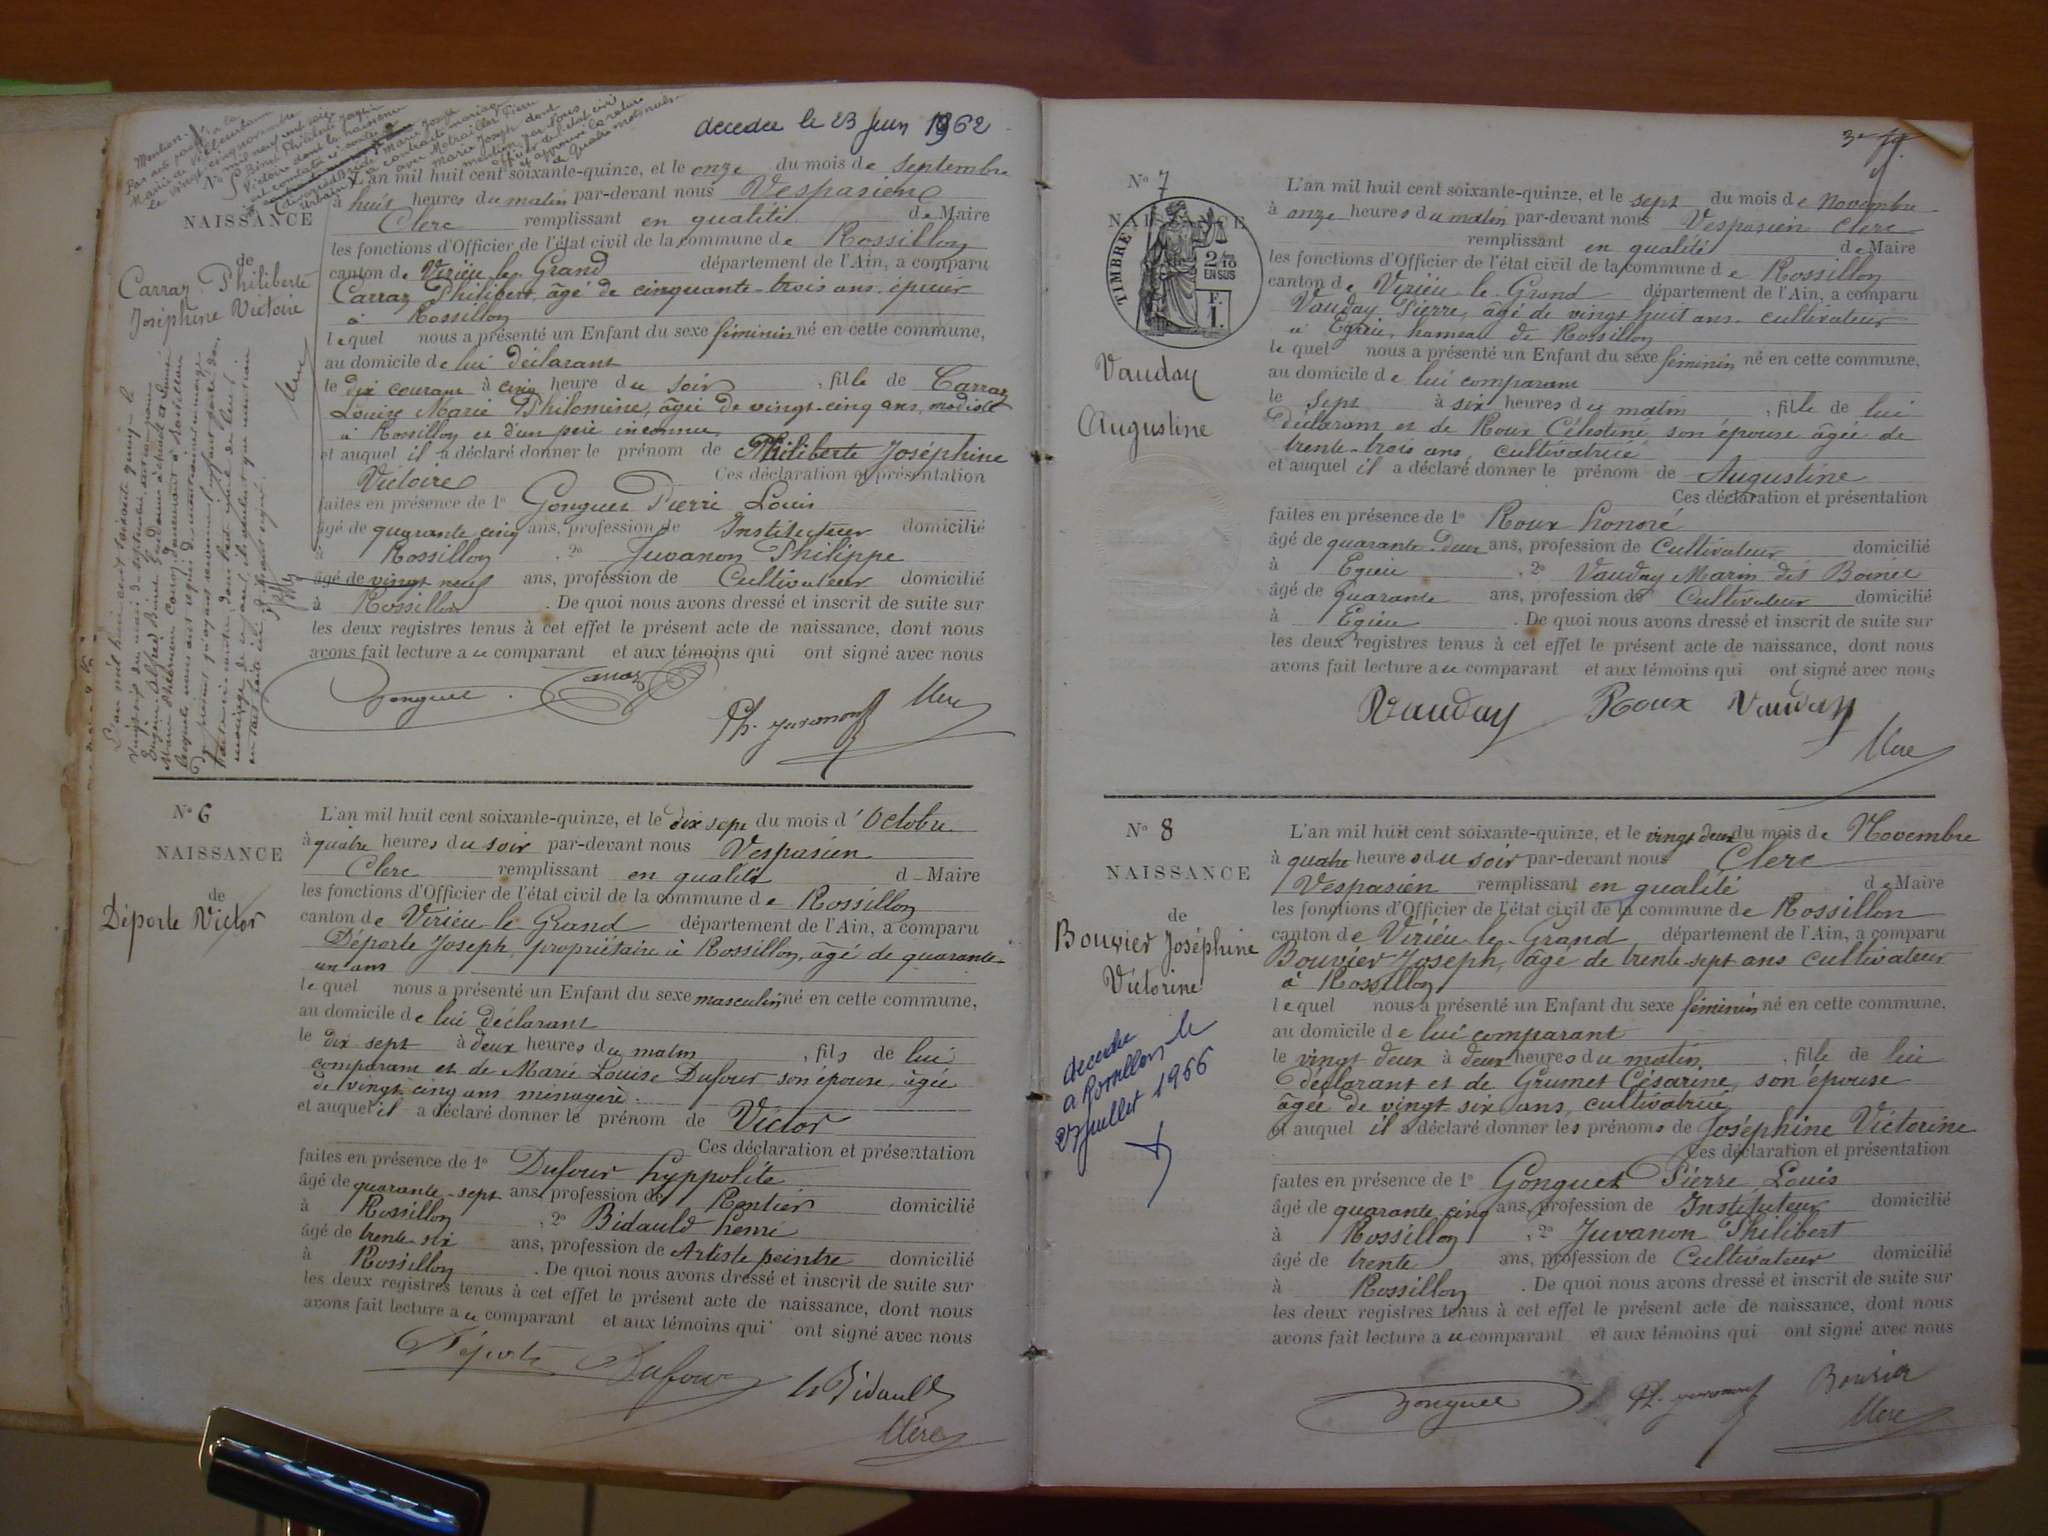 decedee le 23 Juin 1962
L'an mil huit cent soixante-quinze, et le onze du mois de Septembre
à huit heures du matin par-devant nous Vespasien
Clerc remplissant en qualité de Maire
les fonctions d'Officier de l'état civil de la commune de Rossillon
canton de Virieu-le-Grand département de l'Ain, a comparu
Carraz Philibert, âgé de cinquante-trois ans
à Rossillon
lequel nous a présenté un Enfant du sexe féminin né en cette commune,
au domicile de lui déclarant
le dix courant à cinq heure du soir, fille de Carraz
Louise Marie Philomène, âgée de vingt-cinq ans, modiste
à Rossillon et d'un père inconnu
et auquel il a déclaré donner le prénom de Philiberte Joséphine
Victoire Ces déclaration et présentation
faites en présence de 1º Gonguet Pierre Louis
âgé de quarante cinq ans, profession de Instituteur domicilié
à Rossillon, 2º Juvanon Philippe
âgé de vingt neuf ans, profession de Cultivateur domicilié
à Rossillon. De quoi nous avons dressé et inscrit de suite sur
les deux registres tenus à cet effet le présent acte de naissance, dont nous
avons fait lecture au comparant et aux témoins qui ont signé avec nous
Gonguet Carraz
Ph. Juvanon Clerc
NAISSANCE
de
Carraz Philiberte
Joséphine Victoire
Nº 6
NAISSANCE
de
Déporte Victor
L'an mil huit cent soixante-quinze, et le dix sept du mois d'Octobre
à quatre heures du soir par-devant nous Vespasien
Clerc remplissant en qualité d Maire
les fonctions d'Officier de l'état civil de la commune de Rossillon
canton de Virieu-le-Grand département de l'Ain, a comparu
Déporte Joseph, propriétaire à Rossillon, âgé de quarante-
un ans
lequel nous a présenté un Enfant du sexe masculin né en cette commune,
au domicile de lui déclarant
le dix sept à deux heures du matin, fils de lui
comparant et de Marie Louise Dufour son épouse, âgée
de vingt-cinq ans ménagère.
et auquel il a déclaré donner le prénom de Victor
Ces déclaration et présentation
faites en présence de 1º Dufour hyppolite
âgé de quarante-sept ans, profession de Rentier domicilié
à Rossillon, 2º Bidauld henri
âgé de trente-six ans, profession de Artiste peintre domicilié
à Rossillon. De quoi nous avons dressé et inscrit de suite sur
les deux registres tenus à cet effet le présent acte de naissance, dont nous
avons fait lecture au comparant et aux témoins qui ont signé avec nous
Déporte Dufour h Bidauld
Clerc
Nº 7
NAISSANCE
TIMBRE
2/10
EN SUS
F.
1.
Vauday
Augustine
L'an mil huit cent soixante-quinze, et le sept du mois de Novembre
à onze heures du matin par-devant nous Vespasien Clerc
remplissant en qualité de Maire
les fonctions d'Officier de l'état civil de la commune de Rossillon
canton de Virieu-le-Grand département de l'Ain, a comparu
Vauday Pierre, âgé de vingt huit ans cultivateur
à Egieu, hameau de Rossillon
lequel nous a présenté un Enfant du sexe féminin né en cette commune,
au domicile de lui comparant
le Sept à six heures du matin, fille de lui
Déclarant et de Roux Célestine, son épouse âgée de
trente-trois ans, cultivatrice
et auquel il a déclaré donner le prénom de Augustine
Ces déclaration et présentation
faites en présence de 1º Roux honoré
âgé de quarante-deux ans, profession de Cultivateur domicilié
à Egieu, 2º Vauday Marin dit
âgé de quarante ans, profession de Cultivateur domicilié
à Egieu. De quoi nous avons dressé et inscrit de suite sur
les deux registres tenus à cet effet le présent acte de naissance, dont nous
avons fait lecture au comparant et aux témoins qui ont signé avec nous
Vauday Roux Vauday
Clerc
Nº 8
NAISSANCE
de
Bouvier Joséphine
Victorine
decedee
a Rossillon le
27 Juillet 1966
L'an mil huit cent soixante-quinze, et le vingt deux du mois de Novembre
à quatre heures du soir par-devant nous Clerc
Vespasien remplissant en qualité de Maire
les fonctions d'Officier de l'état civil de la commune de Rossillon
canton de Virieu-le-Grand département de l'Ain, a comparu
Bouvier Joseph, âgé de trente-sept ans cultivateur
à Rossillon
lequel nous a présenté un Enfant du sexe féminin né en cette commune,
au domicile de lui comparant
le vingt deux à deux heures du matin, fille de lui
déclarant et de Grumet Césarine, son épouse
âgée de vingt six ans, cultivatrice
et auquel il a déclaré donner les prénoms de Joséphine Victorine
Ces déclaration et présentation
faites en présence de 1º Gonguet Pierre Louis
âgé de quarante cinq ans, profession de Instituteur domicilié
à Rossillon, 2º Juvanon Philibert
âgé de trente ans, profession de Cultivateur domicilié
à Rossillon. De quoi nous avons dressé et inscrit de suite sur
les deux registres tenus à cet effet le présent acte de naissance, dont nous
avons fait lecture au comparant et aux témoins qui ont signé avec nous
Gonguet Ph. Juvanon Bouvier
Clerc